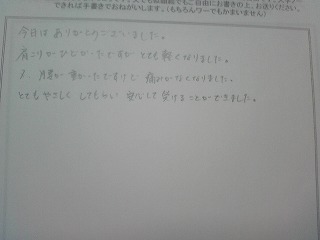 できれば手書きでおねがいします。(もちろんワープロでもかまいません)
今日は ありがとうございました。
肩こりがひどかったですが とても軽くなりました。
又、月経が重かったですけど 痛みがなくなりました。
とてもやさしく してもらい 安心して受けることができました。